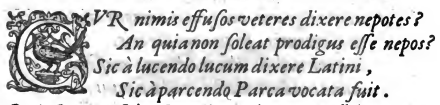 CVR nimis effusos veteres dixere nepotes?
An quia non soleat prodigus esse nepos?
Sic à lucendo lucum dixere Latini,
Sic à parcendo Parca vocata fuit.